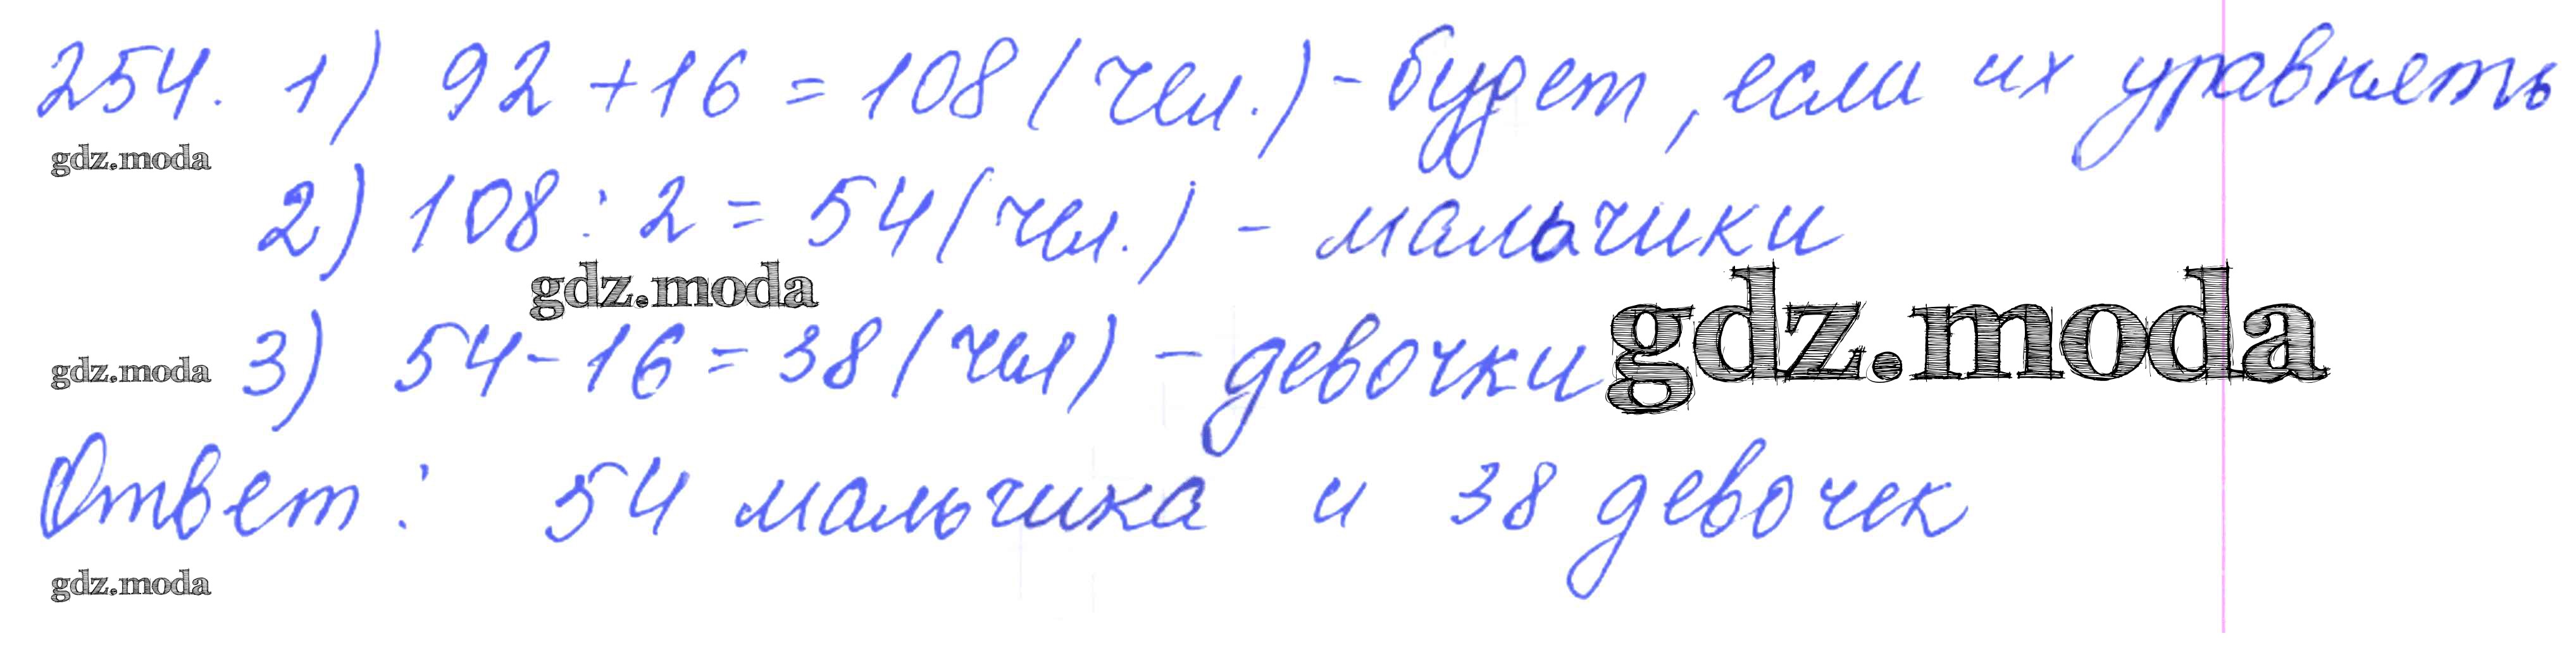 254. 1) 92 + 16 = 108 (чел.) - будет, если их уравнять
gdz.moda
2) 108 : 2 = 54 (чел.) - мальчики
gdz.moda
gdz.moda
gdz.moda 3) 54 - 16 = 38 (чел) - девочки
Ответ: 54 мальчика и 38 девочек
gdz.moda